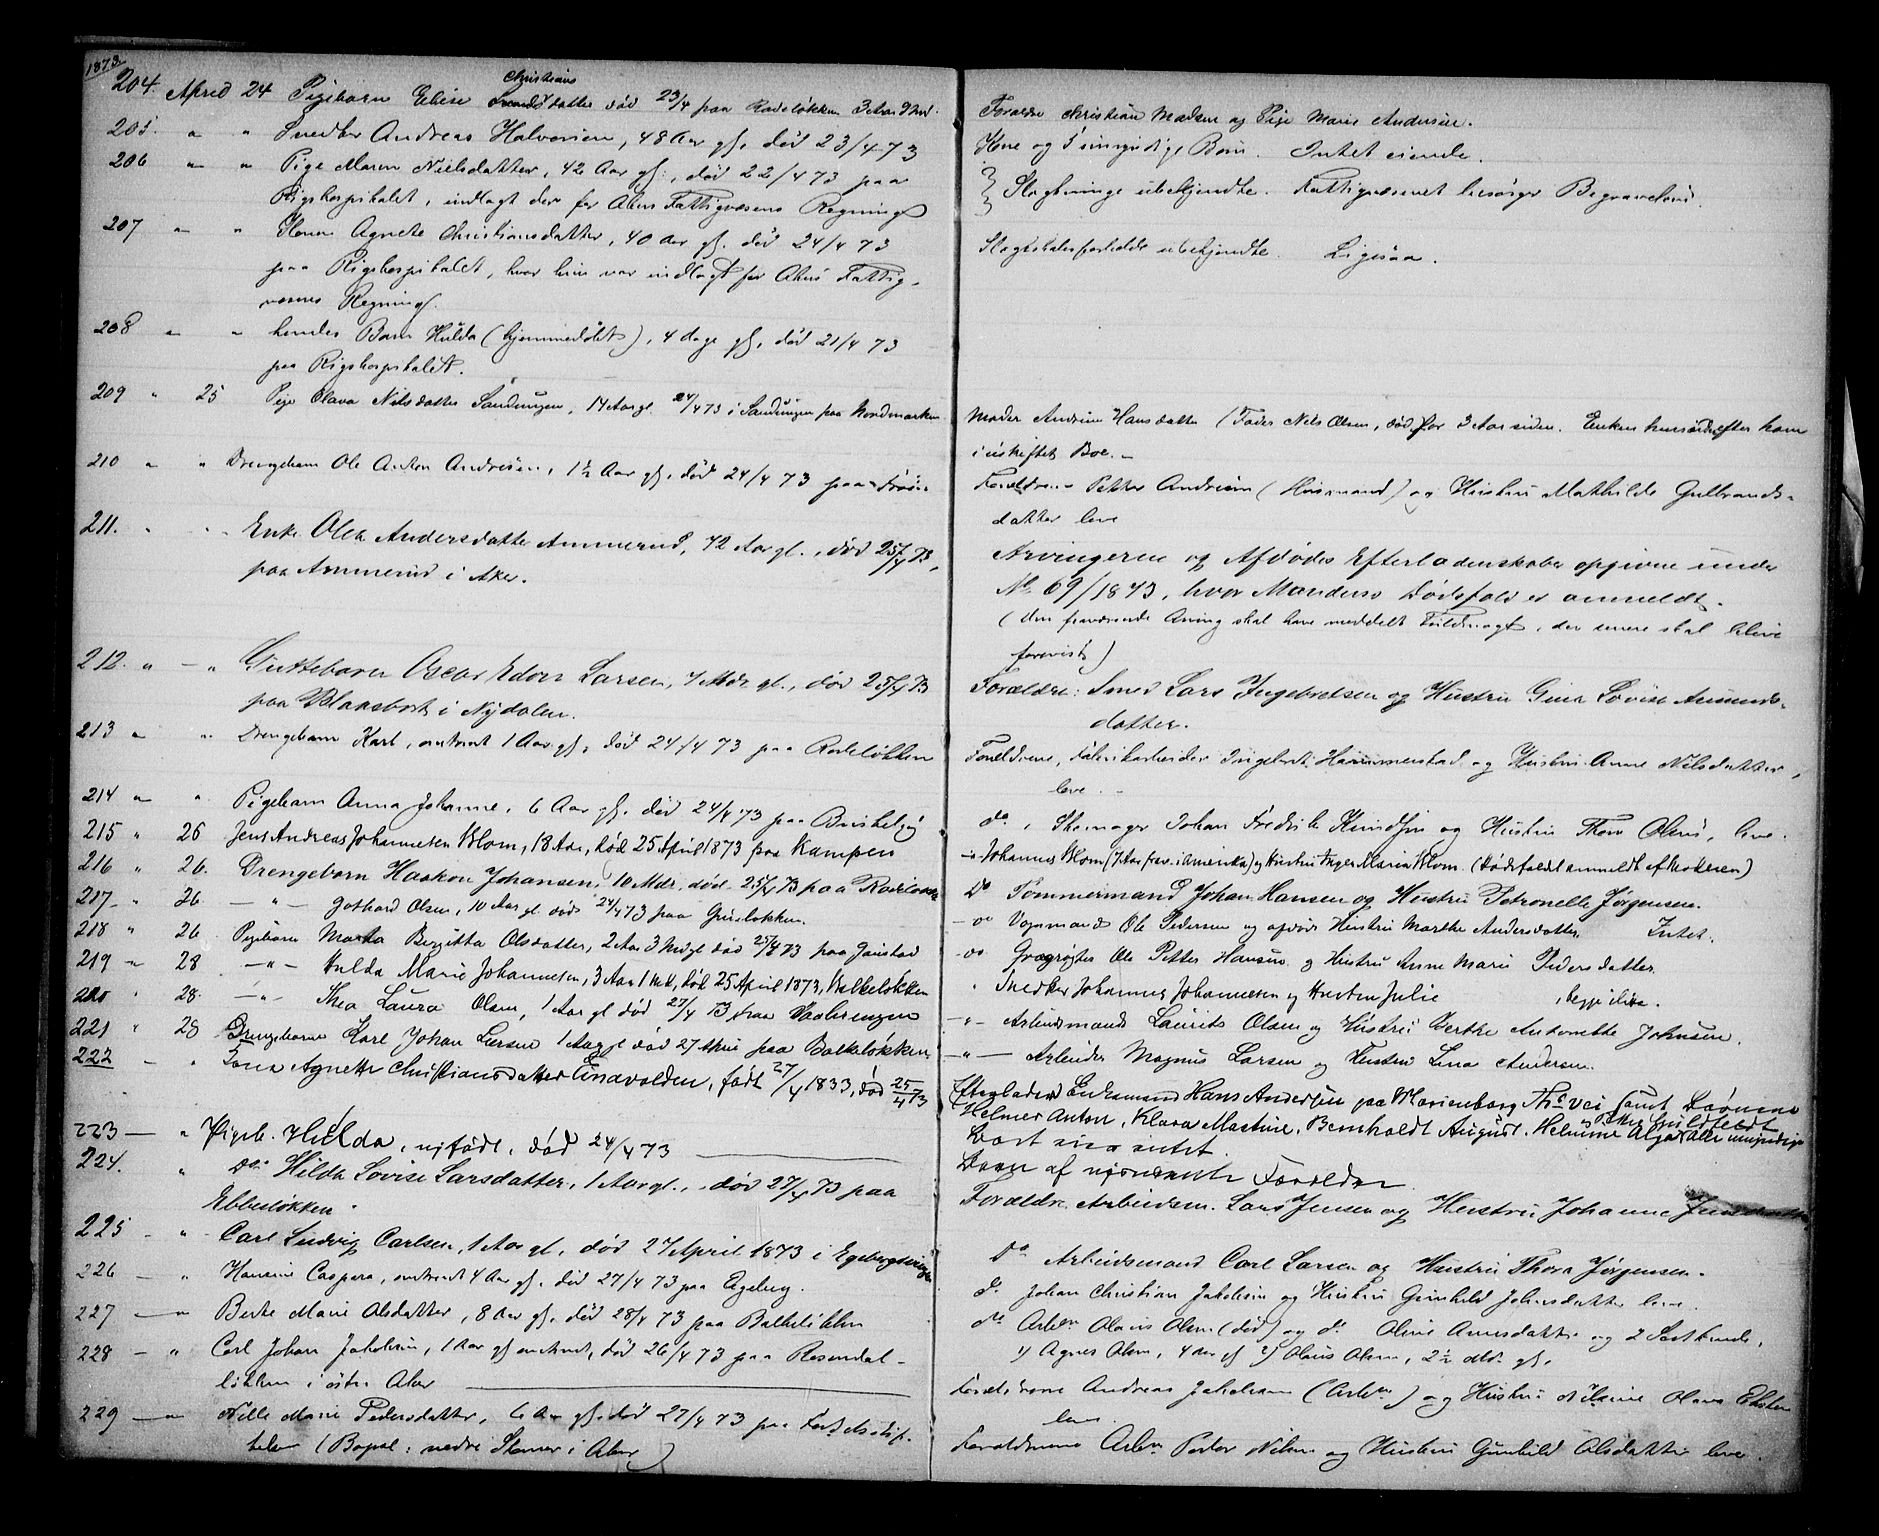 1873.
204. April 24 Pigebarn Elise Christians datter død 23/4 paa Rodeløkken 3 Aar 9 Md.
Forældre Christian Madsen og Pige Marie Andersen.
205. " " Snedker Andreas Halvorsen, 48 Aar gl. død 23/4 73
Kone og 5 umyndige Børn. Intet eiende.
206 " " Pige Maren Nielsdatter, 42 Aar gl., død 22/4 73 paa
Rigshospitalet, indlagt der for Akers Fattigvæsens Regning
Slægtninge ubekjendte. Fattigvæsenet besørger Begravelsen.
207 " " Konen Agnete Christiansdatter, 40 Aar gl. død 24/4 73
paa Rigshospitalet, hvor hun var indlagt for Akers Fattig-
væsens Regning.
Slægtskabsforholde ubekjendte. Ligesaa.
208 " " hendes Barn Hulda (hjemmedøbt), 4 dage gl, død 21/4 73
paa Rigshospitalet.
209 " 25 Pige Olava Nilsdatter Sandungen, 14 Aar gl. 24/4 73 i Sandungen paa Nordmarken
Moder Andrine Hansdatter (Fader Nils Olsen, død for 3 Aar siden. Enken hensidder efter ham
i uskiftet Bo. -
210 " " Drengebarn Ole Anton Andresen, 1½ Aar gl, død 24/4 73 paa
Forældrene Petter Andresen (Husmand) og Hustru Mathilde Gulbrands-
datter leve
211. " " Enke Olea Andersdatter Ammerud, 72 Aar gl., død 25/4 73,
paa Ammerud i Aker.
Arvingerne og Afdødes Efterladenskaber opgivne under
No 69/1873, hvor Mandens Dødsfald er anmeldt.
(den fraværende Arving skal have meddelt Fuldmagt, der senere skal blive
forevist)
212. " - " Guttebarn Oscar Edvin Larsen, 7 Mdr gl., død 25/4 73
paa Blaasbort i Nydalen.
Forældre: Smed Lars Ingebretsen og Hustru Gina Lovise Amunds-
datter.
213 " " Drengebarn Karl, omtrent 1 Aar gl, død 24/4 73 paa Rodeløkken
Forældrene, Fabrikarbeider Ingebret Hammerstad og Hustru Anne Nilsdatter,
leve. -
214 " " Pigebarn Anna Johanne, 6 Aar gl. død 24/4 73 paa
do, Skomager Johan Fredrik Knudsen og Hustru Thea Olsen, leve.
215 " 26 Jens Andreas Johannesen Blom, 18 Aar, død 25 April 1873 paa Kampen
Johannes Blom (7 Aar frav. i Amerika) og Hustru Inger Maria Blom. (Dødsfaldet anmeldt af Moderen)
216 " 26. Drengebarn Haakon Johansen, 10 Mdr. død 25/4 73 paa
Do Tømmermand Johan Hansen og Hustru Petronelle Jørgensen.
217 " 26 - " - Gothard Olsen, 10 Aar gl døde 24/4 73 paa Grüsløkken.
- do Vognmand Ole Pedersen og afdøde Hustru Marthe Andersdatter Intet.
218 " 26 Pigebarn Marta Birgitta Olsdatter, 2 Aar 3 Md gl død 25/4 73 paa
- do Ole Petter Hansen og Hustru Anne Marie Pedersdatter
219 " 28 - " - Hulda Marie Johannesen, 3 Aar 1 Md, død 25 April 1873, Balkeløkken
" Snedker Johannes Johannesen og Hustru Julie , begge ilive.
220 " 28. - " - Thea Laura Olsen, 1 Aar gl død 27/4 73 paa Vaalerengen
- " - Arbeidsmand Laurits Olsen og Hustru Berthe Antonette Johnsen.
221 " 28 Drengebarn Karl Johan Larsen 1 Aar gl død 27 paa Balkeløkken
- " - Arbeider Magnus Larsen og Hustru Lina Andersen.
222 - " Kona Agnette Christiansdatter Enavolden, født 27/4 1833, død 25/4 73
Efterlader Enkemand Hans Andersen paa Marienborg Th: vei samt Børnene
Helmer Anton, Klara Mastine, Bernholdt August, Helmine Alga alle umyndige
Bort intet.
223 - " Pigeb. Hulda, nyfødt, død 24/4 73
Barn af nysnævnte Forældre.
224. " Do Hilda Lovise Larsdatter, 1 Aar gl., død 27/4 73 paa
Ebbesløkken.
Forældre Arbeidsm. Lars Jensen og Hustru Johanne
225 - " Carl Ludvig Carlsen, 1 Aar gl, død 27 April 1873 i
Do Arbeidsmand Carl Larsen og Hustru Thora Jørgensen.
226 - " Hansine Caspara, omtrent 4 Aar gl. død 27/4 73 paa Egeberg.
do Johan Christian Jakobsen og Hustru Gunhild Johnsdatter leve.
227 - " Berte Marie Olsdatter, 8 Aar gl. død 28/4 73 paa Balkeløkken
do Arbm Olaves Olsen (død) og do Oline Arnesdatter og 2 Søskende,
1) Agnes Olsen, 4 Aar gl 2) Olaus Olsen, 2½ Mdr. gl.
228 - " Carl Johan Jakobsen, 1 Aar gl omtrent, død 26/4 73 paa Rosendal-
løkken i østre Aker
Forældrene Andreas Jakobsen (Arbm) og Hustru Olava
leve.
229 - " Nille Marie Pedersdatter, 6 Aar gl. død 27/4 73 paa Fødselsstif-
telsen (Bopæl: nedre i Aker)
Forældrene Arbm Peder Nilsen og Hustru Gunhild Olsdatter leve.